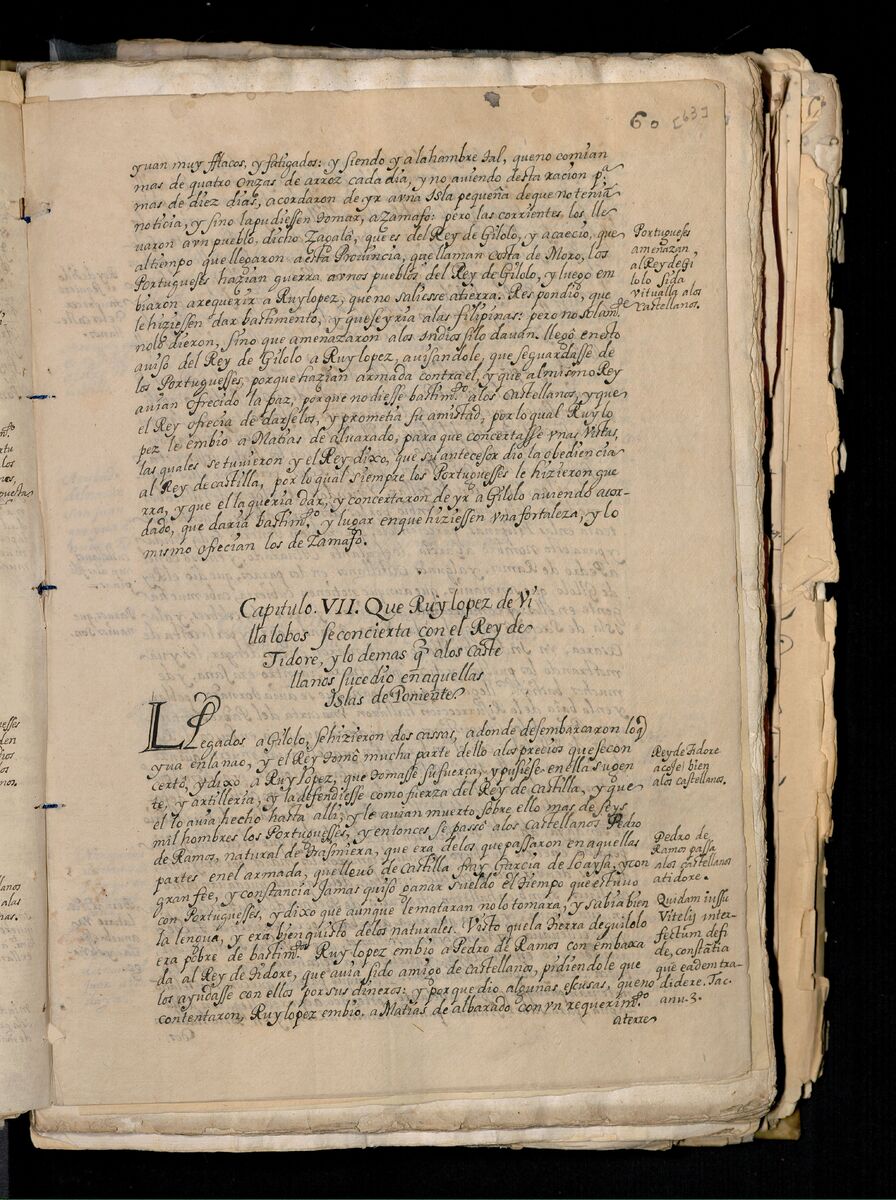 60 [63]
yuan muy fflacos, y fatigados: y siendo ya la hambre tal, que no comian
mas de quatro onzas de arroz cada dia, y no auiendo desta racion pa
mas de diez dias, acordaron de yr a vna Isla pequeña de que no tenia
noticia, y sino la pudiessen tomar, a Zamafo: pero las corrientes los lle
uaron a vn pueblo, dicho Zagala, que es del Rey de Gilolo, y acaecio, que
al tiempo que llegaron a esta Prouincia, que llaman costa de Moro, los
Portugueses hazian guerra a vnos pueblos del Rey de Gilolo, y luego em
biaron a requerir a Ruylopez, que no saliesse a tierra. Respondio, que
le hiziessen dar bastimento, y que se yria a las filipinas: pero no solam.te
no lo dieron, sino que amenazaron a los Indios si lo dauan. llego en esto
auiso del Rey de Gilolo a Ruy lopez, auisandole, que se guardasse de
los Portuguesses, porque hazian armada contra el, y que al mismo Rey
auian ofrecido la paz, porque no diesse bastim.to a los Castellanos, y que
el Rey ofrecia de darselos, y prometia su amistad, por lo qual Ruy lo
pez le embio a Matias de aluarado, para que concertasse vnas vistas,
las quales se tuuieron y el Rey dixo, que su antecesor dio la obediencia
al Rey de castilla, por lo qual siempre los Portuguesses le hizieron gue
rra, y que el la queria dar, y concertaron de yr a Gilolo auiendo acor-
dado, que daria bastim.to y lugar en que hiziessen vna fortaleza, y lo
mismo ofrecian los de Zamafo.
Portugueses
amenazan
al Rey de Gi
lolo si da
vitualla a los
Castellanos.
Capitulo. VII. Que Ruy lopez de Vi
lla lobos se concierta con el Rey de
Tidore, y lo demas q̃ a los caste
llanos sucedio en aquellas
Islas de Poniente
Llegados a Gilolo, se hizieron dos cassas, a donde desembarcaron lo q̃
yua en la nao, y el Rey tomó mucha parte dello a los precios que se con
certó, y dixo a Ruy lopez, que tomasse su fuerça, y pusiese en ella su gen
te, y artilleria, y la defendiesse como fuerza del Rey de Castilla, y que
el lo auia hecho hasta alli, y le auian muerto sobre ello mas de seys
mil hombres los Portuguesses, y entonces se passó a los castellanos Pedro
de Ramos, natural de trasmiera, que era de los que passaron en aquellas
partes en el armada, que lleuo de Castilla fray Garcia de Loaysa, y con
gran fee, y constancia Jamas quiso ganar sueldo el tiempo que estuuo
con Portuguesses, y dixo que aunque le mataran no lo tomara, y sabia bien
la lengua, y era bien quisto de los naturales. Visto que la tierra de guilolo
era pobre de bastim.to Ruy lopez embio a Pedro de Ramos con embaxa
da al Rey de tidore, que auia sido amigo de castellanos, pidiendole que
los ayudasse con ellos por sus dineros: y porque dio algunas escusas, que no
contentaron, Ruy lopez embio. a Matias de albarado con vn requerim.to
aterre
Rey de Tidore
acoge bien
a los castellanos.
Pedro de
Ramos passa
a los castellanos
a tidore.
Quidam iussu
Vitelij inter-
fectum defi
de, constãtia
que eadem tra-
didere. Tac.
anu. 3.